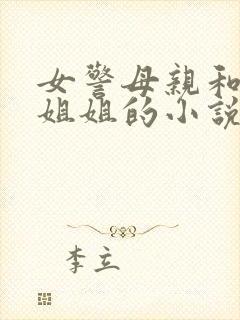 女警母親和
姐姐的小說
李立